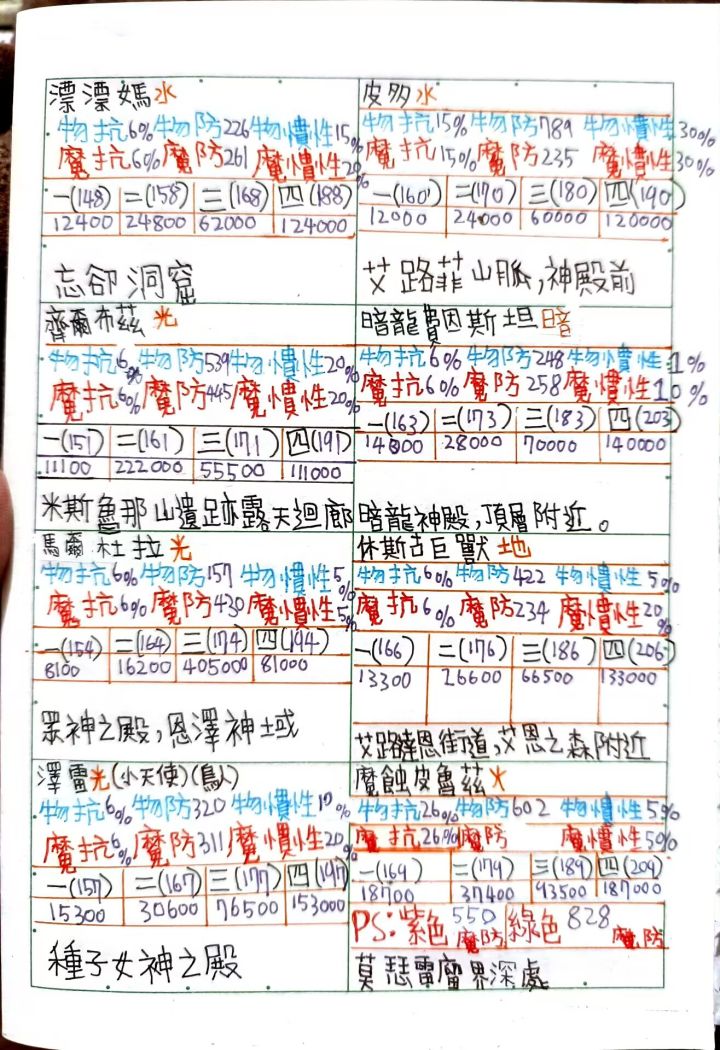 漂漂媽水
物抗6%物防226物慣性15%
魔抗6%魔防261魔慣性20%
一(148) 二(158) 三(168) 四(188)
12400 24800 62000 124000
忘卻洞窟
皮多水
物抗15%物防789 物慣性30%
魔抗15%魔防235 魔慣性30%
一(160) 二(170) 三(180) 四(190)
12000 24000 60000 120000
艾路菲山脈,神殿前
齊爾布茲光
物抗6%物防539物慣性20%
魔抗6%魔防445魔慣性20%
一(151) 二(161) 三(171) 四(191)
11100 222000 55500 111000
米斯魯那山遺跡露天迴廊
暗龍費因斯坦暗
物抗6%物防248物慣性1%
魔抗6%魔防258魔慣性10%
一(163) 二(173) 三(183) 四(203)
14000 28000 70000 140000
暗龍神殿,頂層附近。
馬爾杜拉光
物抗6%物防157物慣性5%
魔抗6%魔防430魔慣性5%
一(154) 二(164) 三(174) 四(194)
8100 16200 405000 81000
眾神之殿,恩澤神域
休斯古巨獸地
物抗6%物防422 物慣性5%
魔抗6%魔防234魔慣性20%
一(166) 二(176) 三(186) 四(206)
13300 26600 66500 133000
艾路達恩街道,艾恩之森附近
澤雷光(小天使)(鳥人)
物抗6%物防320 物慣性10%
魔抗6%魔防311魔慣性20%
一(157) 二(167) 三(177) 四(197)
15300 30600 76500 153000
種子女神之殿
魔蝕皮魯茲火
物抗26%物防602 物慣性5%
魔抗26%魔防 魔慣性50%
一(169) 二(179) 三(189) 四(209)
18700 37400 93500 187000
PS:紫色550魔防 綠色828魔防
莫瑟雷魔界深處